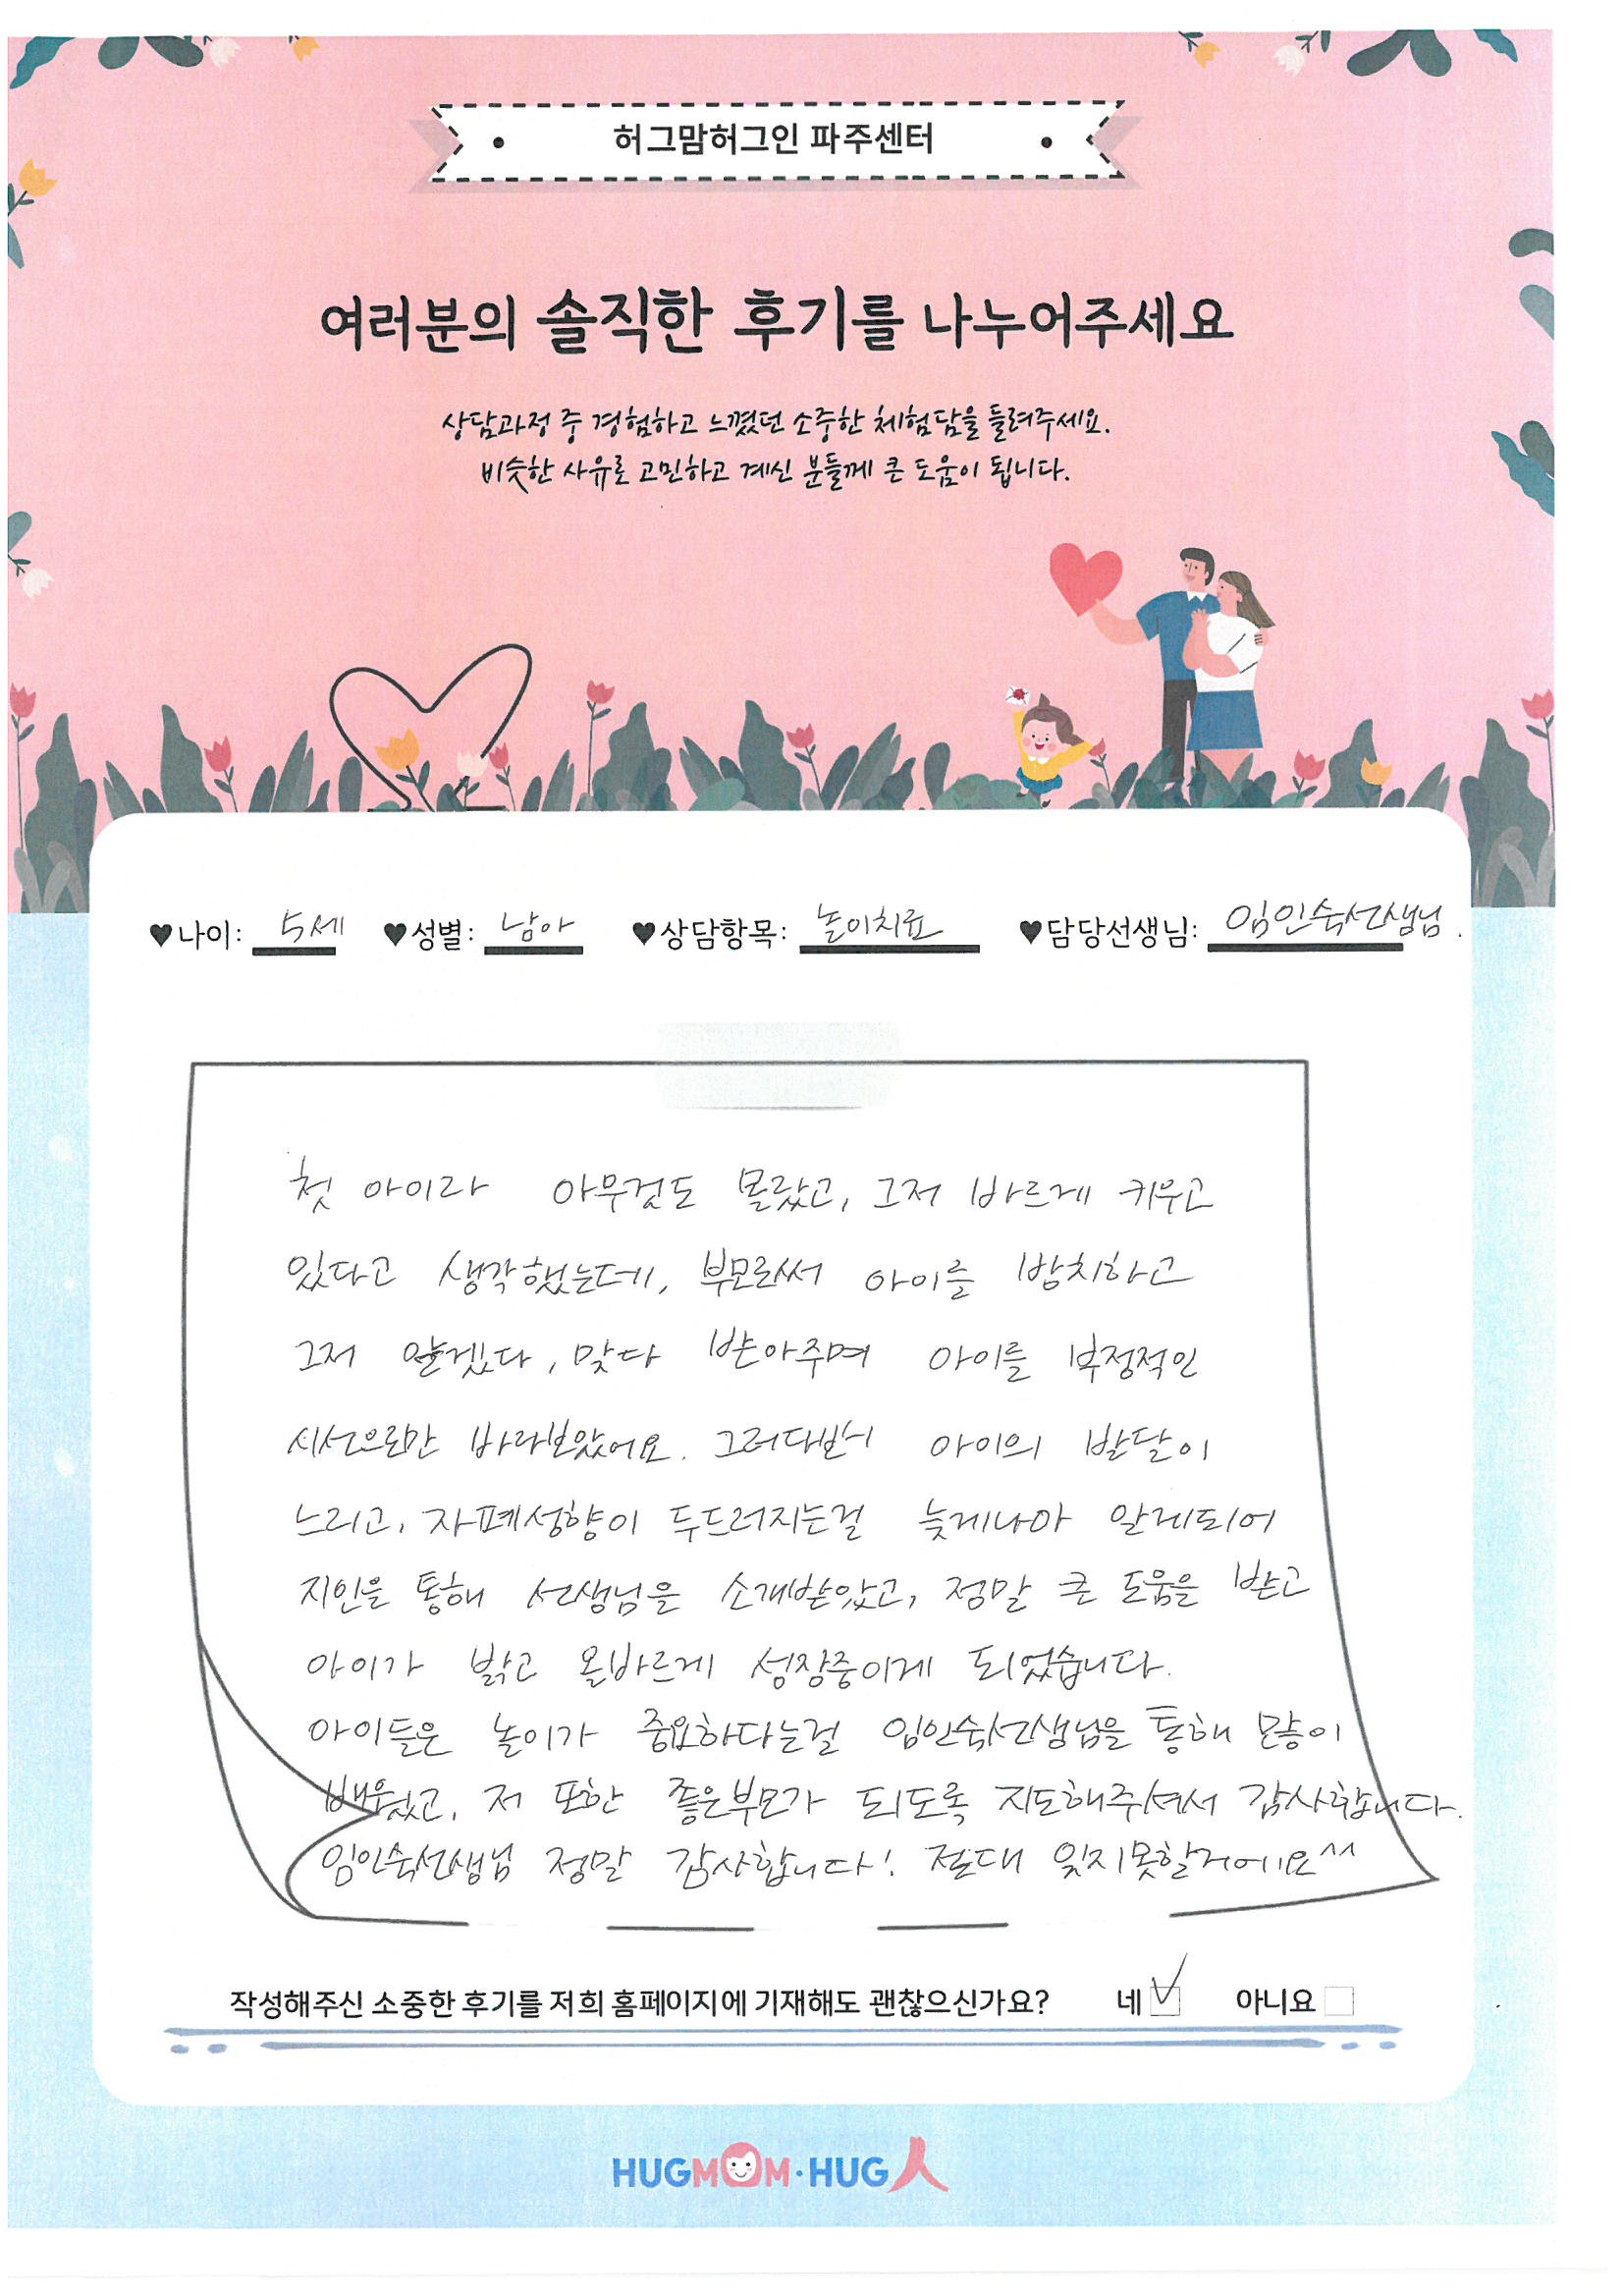 허그맘허그인 파주센터
여러분의 솔직한 후기를 나누어주세요
상담과정 중 경험하고 느꼈던 소중한 체험담을 들려주세요.
비슷한 사유로 고민하고 계신 분들께 큰 도움이 됩니다.
♥나이: 5세 ♥성별: 남아 ♥상담항목: 놀이치료 ♥담당선생님: 임인숙선생님.
첫 아이라 아무것도 몰랐고, 그저 바르게 키우고
있다고 생각했는데, 부모로써 아이를 방치하고
그저 알겠다, 맞다 받아주며 아이를 부정적인
시선으로만 바라보았어요. 그러다보니 아이의 발달이
느리고, 자폐성향이 두드러지는걸 늦게나마 알게되어
지인을 통해 선생님을 소개받았고, 정말 큰 도움을 받고
아이가 밝고 올바르게 성장중이게 되었습니다.
아이들은 놀이가 중요하다는걸 임인숙선생님을 통해 많이
배웠고, 저 또한 좋은부모가 되도록 지도해주셔서 감사합니다.
임인숙선생님 정말 감사합니다! 절대 잊지못할거에요^^
작성해주신 소중한 후기를 저희 홈페이지에 기재해도 괜찮으신가요? 네 아니요
HUGMOM·HUG人